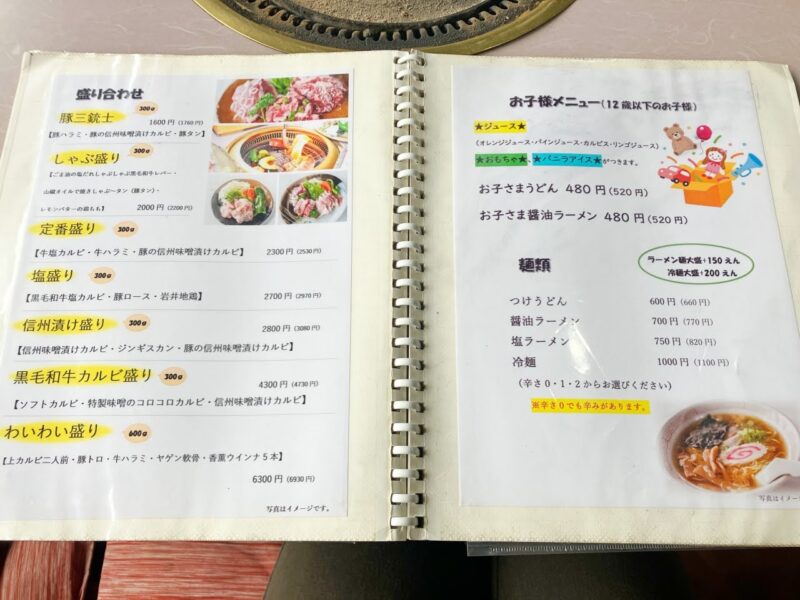 盛り合わせ
豚三銃士 300g 1600円(1760円)
【豚ハラミ・豚の信州味噌漬けカルビ・豚タン】
しゃぶ盛り 300g
【ごま油の塩だれしゃぶしゃぶ黒毛和牛レバー・
山椒オイルで焼きしゃぶ〜タン(豚タン)・
レモンバターの鶏もも】 2000円(2200円)
定番盛り 300g
【牛塩カルビ・牛ハラミ・豚の信州味噌漬けカルビ】 2300円(2530円)
塩盛り 300g
【黒毛和牛塩カルビ・豚ロース・岩井地鶏】 2700円(2970円)
信州漬け盛り 300g
2800円(3080円)
【信州味噌漬けカルビ・ジンギスカン・豚の信州味噌漬けカルビ】
黒毛和牛カルビ盛り 300g
4300円(4730円)
【ソフトカルビ・特製味噌のコロコロカルビ・信州味噌漬けカルビ】
わいわい盛り 600g
【上カルビ二人前・豚トロ・牛ハラミ・ヤゲン軟骨・香薫ウインナ5本】
6300円(6930円)
写真はイメージです。
お子様メニュー(12歳以下のお子様)
★ジュース★
(オレンジジュース・パインジュース・カルピス・リンゴジュース)
★おもちゃ★、★バニラアイス★がつきます。
お子さまうどん 480円(520円)
お子さま醤油ラーメン 480円(520円)
麺類
ラーメン麺大盛+150えん
冷麺大盛+200えん
つけうどん 600円(660円)
醤油ラーメン 700円(770円)
塩ラーメン 750円(820円)
冷麺 1000円(1100円)
(辛さ0・1・2からお選びください)
※辛さ0でも辛みがあります。
写真はイメー